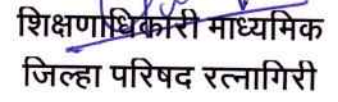 शिक्षणाधिकारी माध्यमिक
जिल्हा परिषद रत्नागिरी